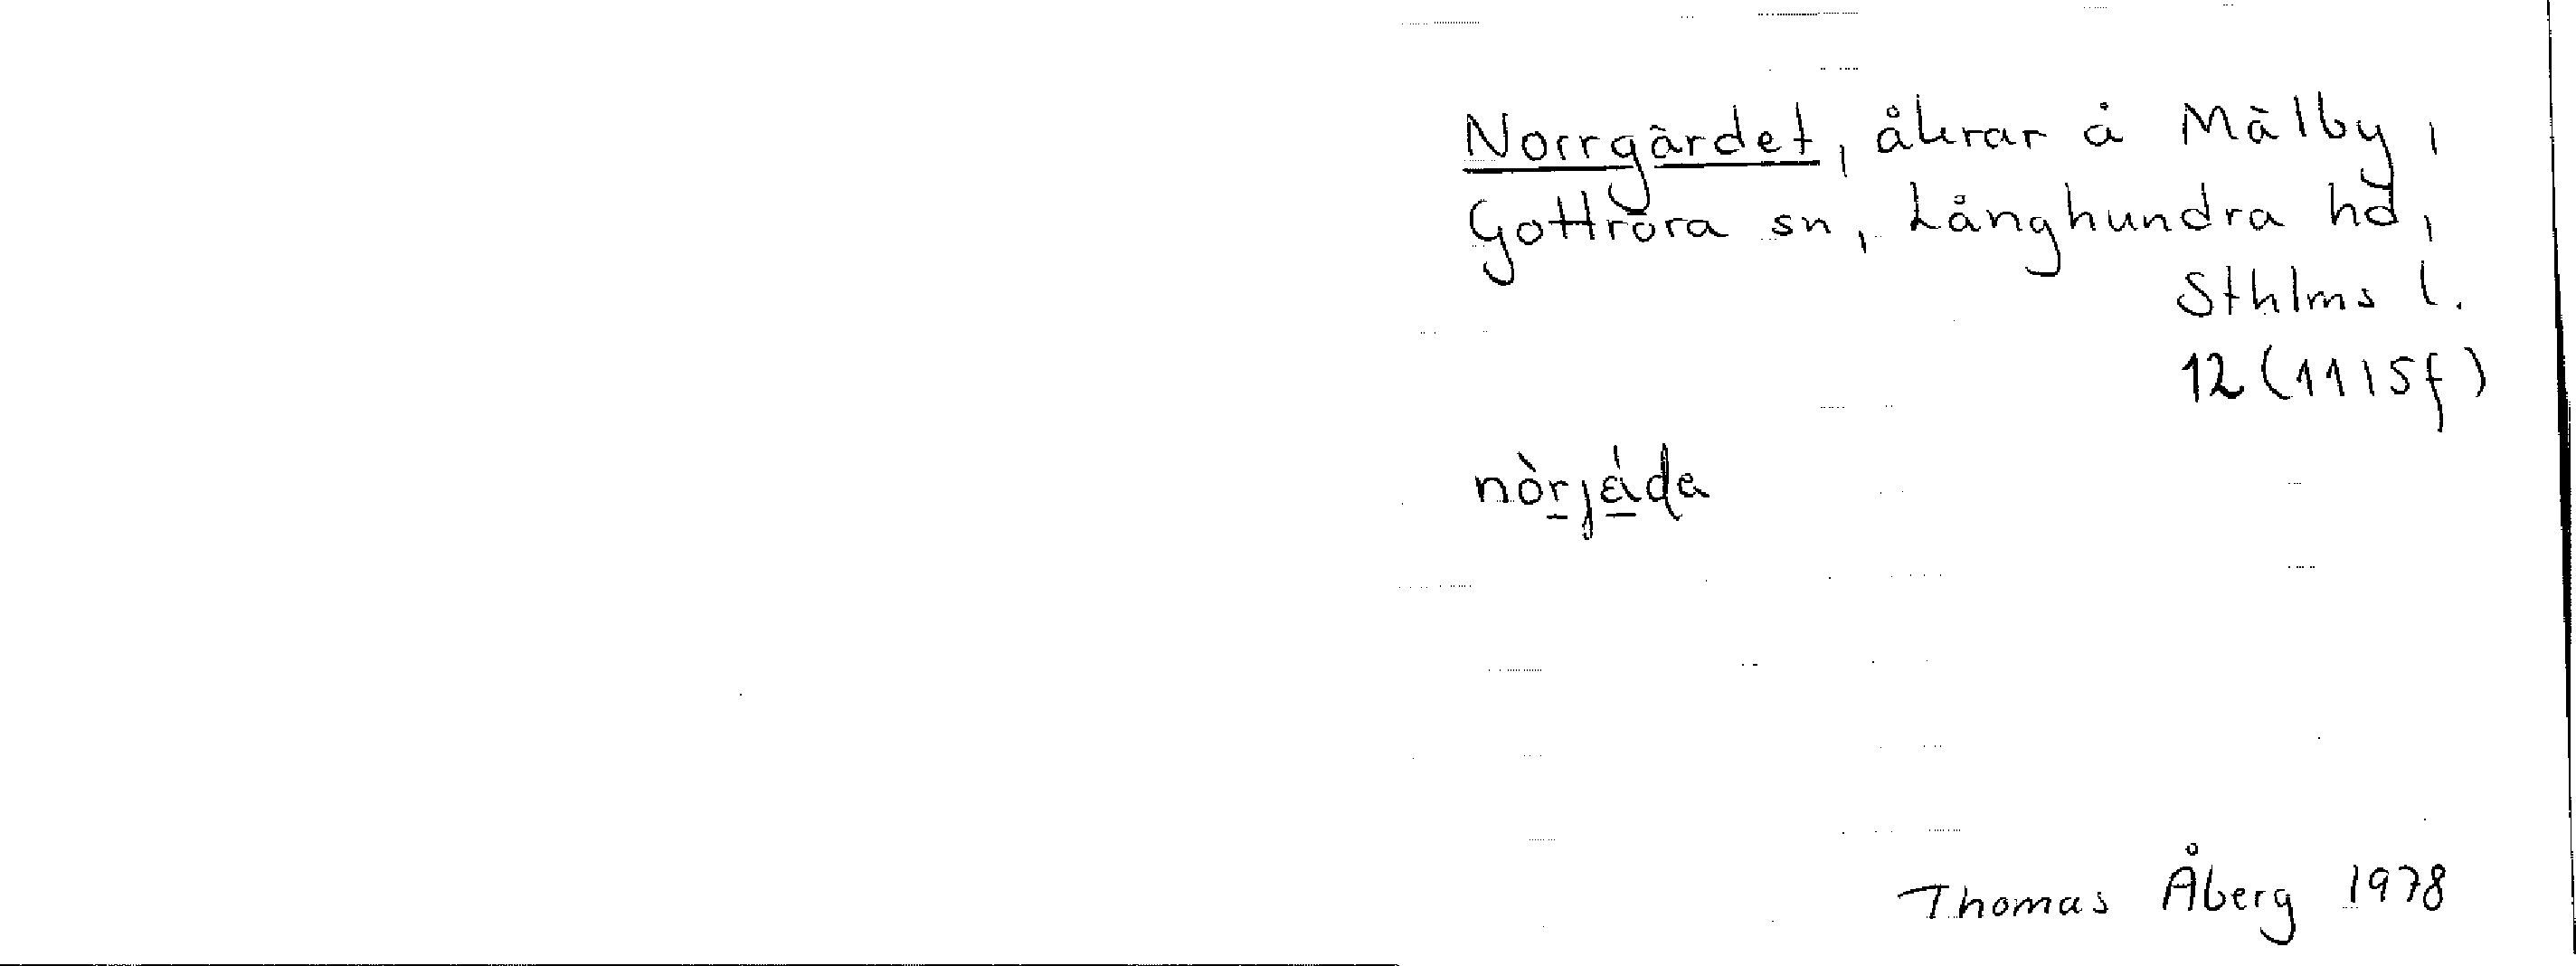 Norrgärdet, åkrar å Mälby,
Gottröra sn, Långhundra hd,
Sthlms l.
12 (11 I 5 f)
nòrjɛ́da
Thomas Åberg 1978